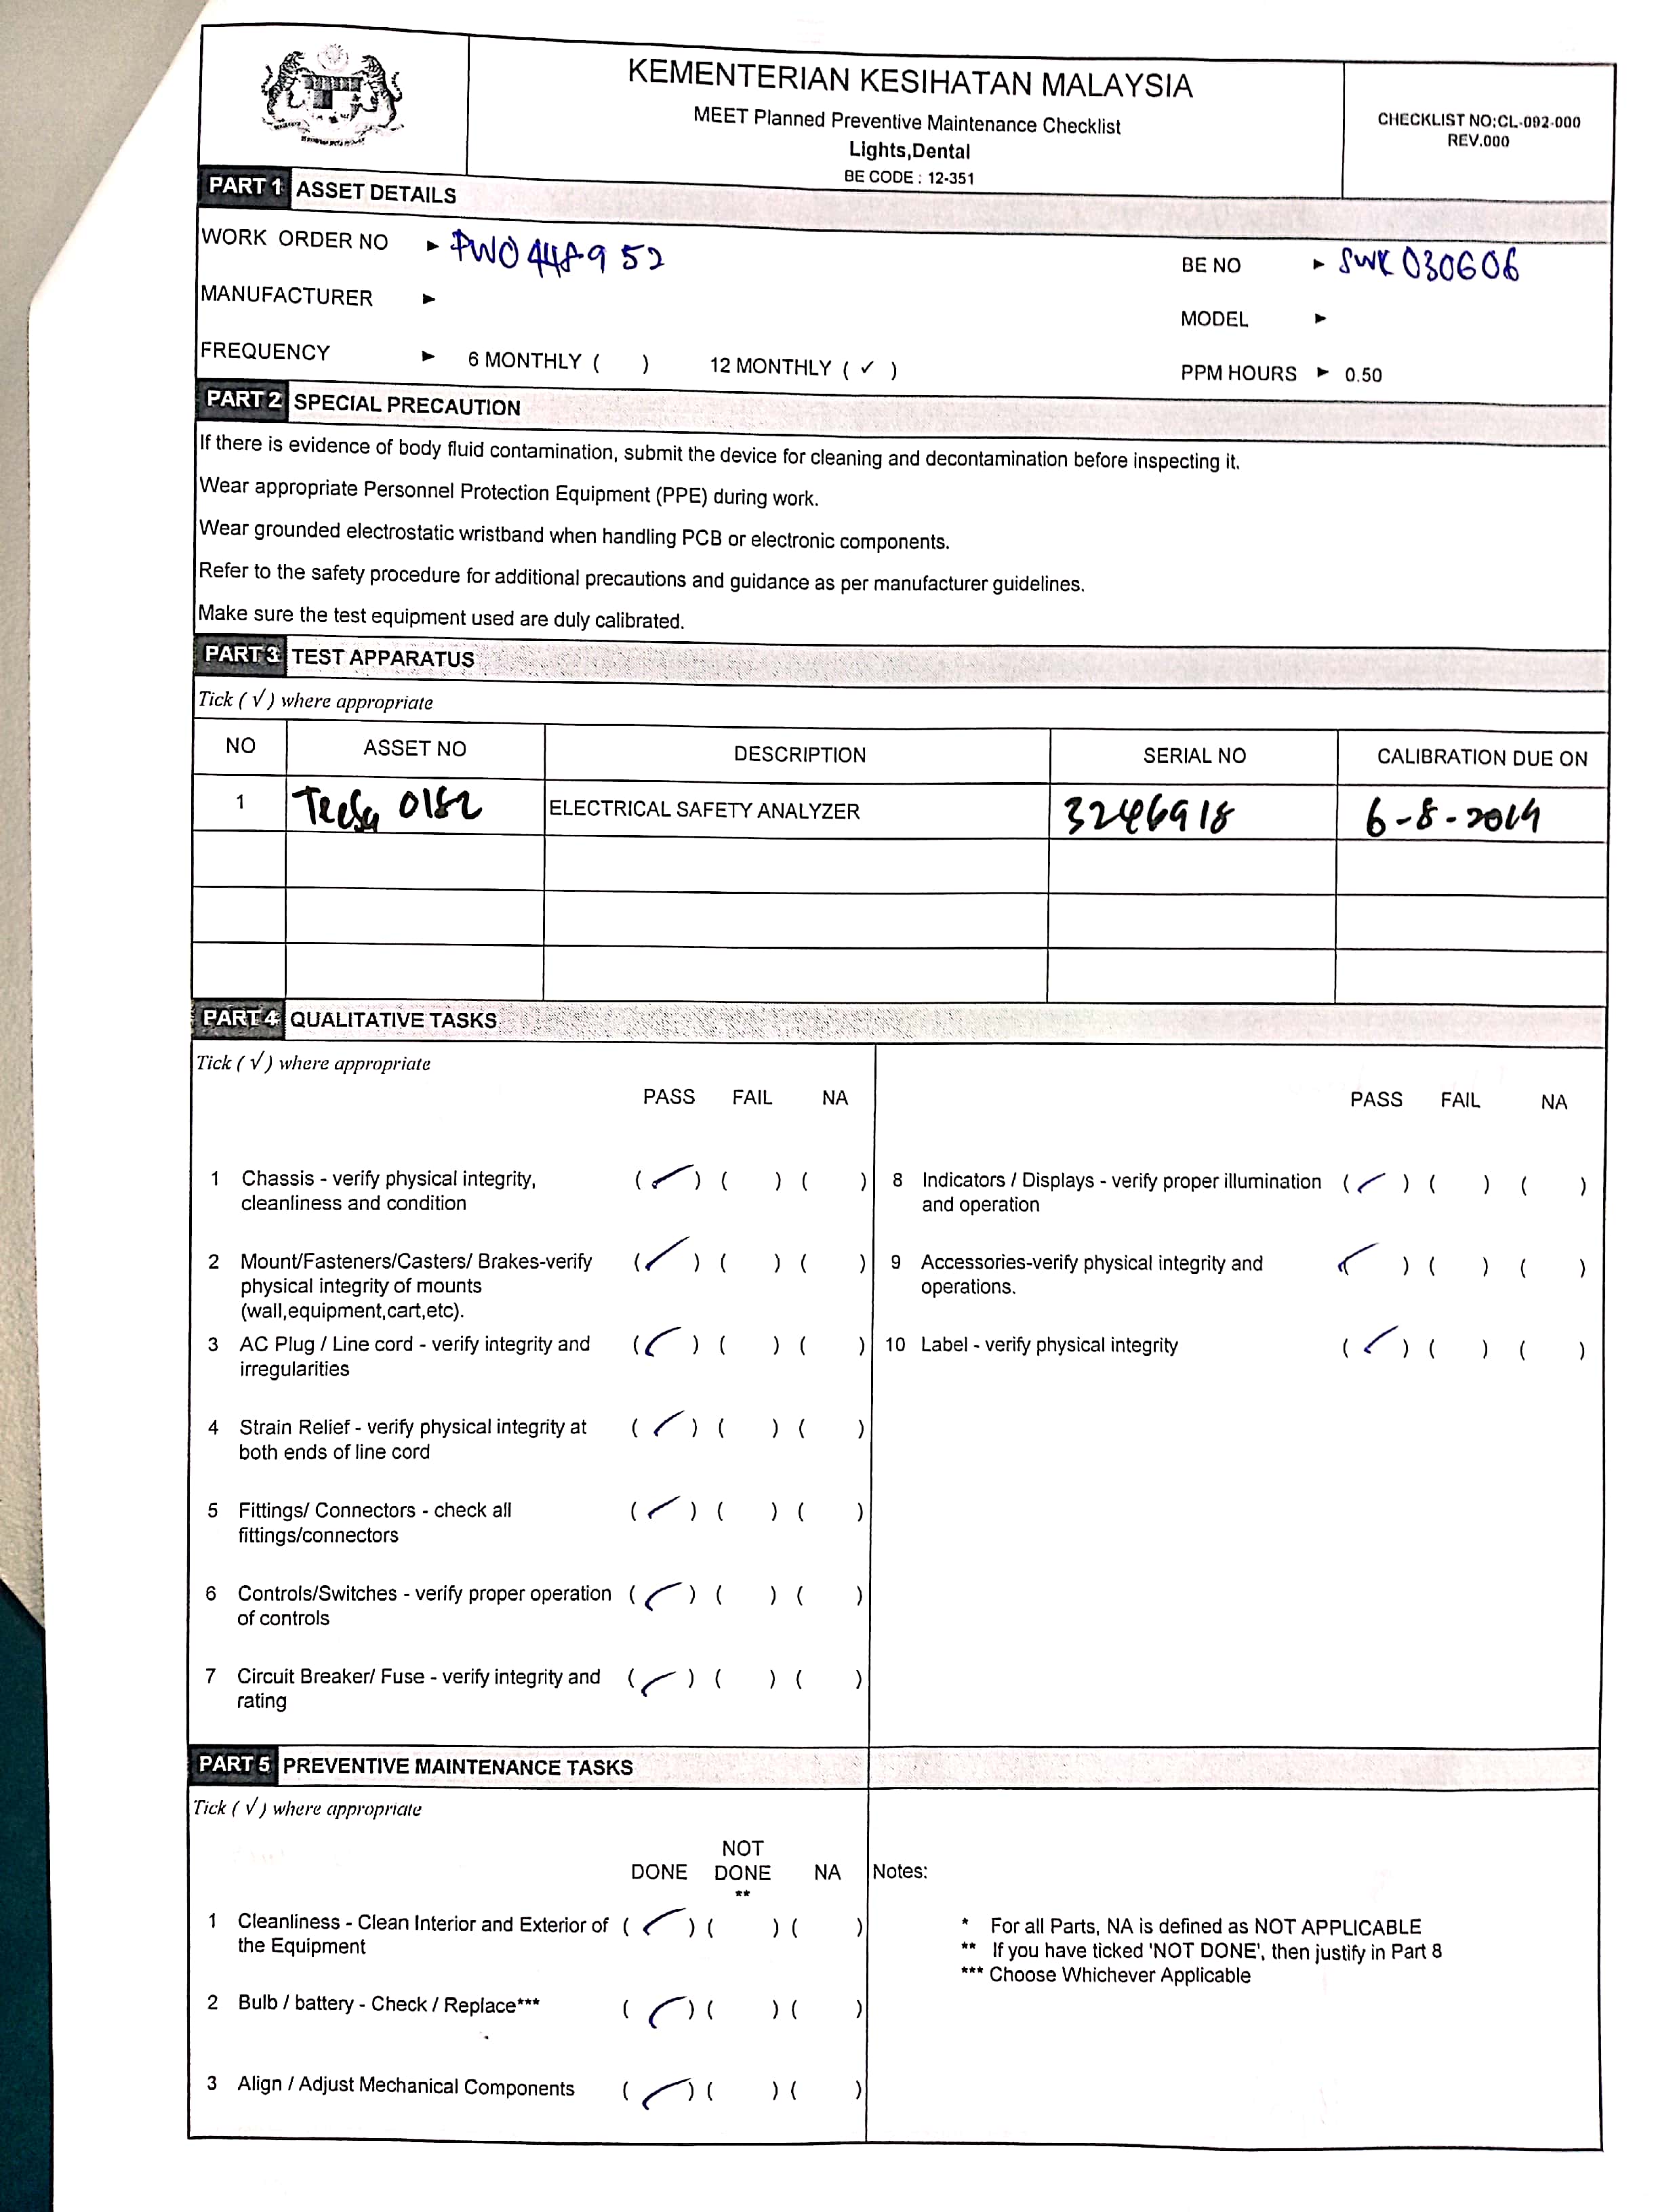 KEMENTERIAN KESIHATAN MALAYSIA
MEET Planned Preventive Maintenance Checklist
Lights,Dental
BE CODE : 12-351
CHECKLIST NO:CL-092-000
REV.000
PART 1 ASSET DETAILS
WORK ORDER NO ► PWO448952
BE NO ► SWK030606
MANUFACTURER ►
MODEL ►
FREQUENCY ► 6 MONTHLY ( ) 12 MONTHLY ( ✓ )
PPM HOURS ► 0.50
PART 2 SPECIAL PRECAUTION
If there is evidence of body fluid contamination, submit the device for cleaning and decontamination before inspecting it.
Wear appropriate Personnel Protection Equipment (PPE) during work.
Wear grounded electrostatic wristband when handling PCB or electronic components.
Refer to the safety procedure for additional precautions and guidance as per manufacturer guidelines.
Make sure the test equipment used are duly calibrated.
PART 3 TEST APPARATUS
Tick ( √ ) where appropriate
NO ASSET NO DESCRIPTION SERIAL NO CALIBRATION DUE ON
1 0182 ELECTRICAL SAFETY ANALYZER 3246918 6-8-2019
PART 4 QUALITATIVE TASKS
Tick ( √ ) where appropriate
PASS FAIL NA
1 Chassis - verify physical integrity, (✓) ( ) ( )
cleanliness and condition
2 Mount/Fasteners/Casters/ Brakes-verify (✓) ( ) ( )
physical integrity of mounts
(wall,equipment,cart,etc).
3 AC Plug / Line cord - verify integrity and (✓) ( ) ( )
irregularities
4 Strain Relief - verify physical integrity at (✓) ( ) ( )
both ends of line cord
5 Fittings/ Connectors - check all (✓) ( ) ( )
fittings/connectors
6 Controls/Switches - verify proper operation (✓) ( ) ( )
of controls
7 Circuit Breaker/ Fuse - verify integrity and (✓) ( ) ( )
rating
PASS FAIL NA
8 Indicators / Displays - verify proper illumination (✓) ( ) ( )
and operation
9 Accessories-verify physical integrity and (✓) ( ) ( )
operations.
10 Label - verify physical integrity (✓) ( ) ( )
PART 5 PREVENTIVE MAINTENANCE TASKS
Tick ( √ ) where appropriate
NOT
DONE DONE NA
**
1 Cleanliness - Clean Interior and Exterior of (✓) ( ) ( )
the Equipment
2 Bulb / battery - Check / Replace*** (✓) ( ) ( )
3 Align / Adjust Mechanical Components (✓) ( ) ( )
Notes:
* For all Parts, NA is defined as NOT APPLICABLE
** If you have ticked 'NOT DONE', then justify in Part 8
*** Choose Whichever Applicable